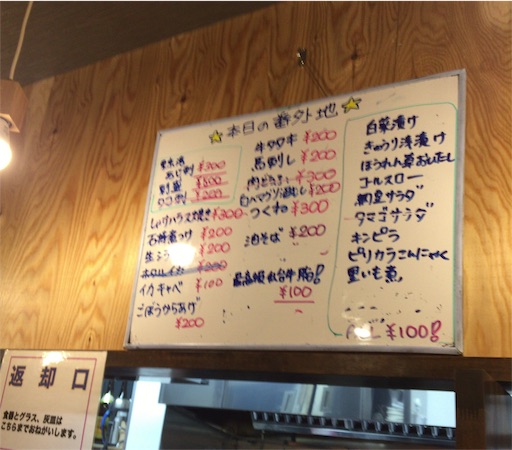 ☆本日の番外地☆
あじ刺 ¥300
¥500
タコ刺 ¥200
しゃけハラス焼き ¥300
¥200
¥200
ホタルイカ ¥200
イカキャベ ¥100
ごぼうからあげ
¥200
牛タタキ ¥200
馬刺し ¥200
¥300
¥200
つくね ¥300
油そば ¥200
最高級仙台牛
¥100
白菜漬け
きゅうり浅漬け
ほうれん草おしたし
コールスロー
サラダ
タマゴサラダ
キンピラ
ピリカラこんにゃく
里いも煮
¥100!
返却口
食器とグラス、灰皿は
こちらまでおねがいします。